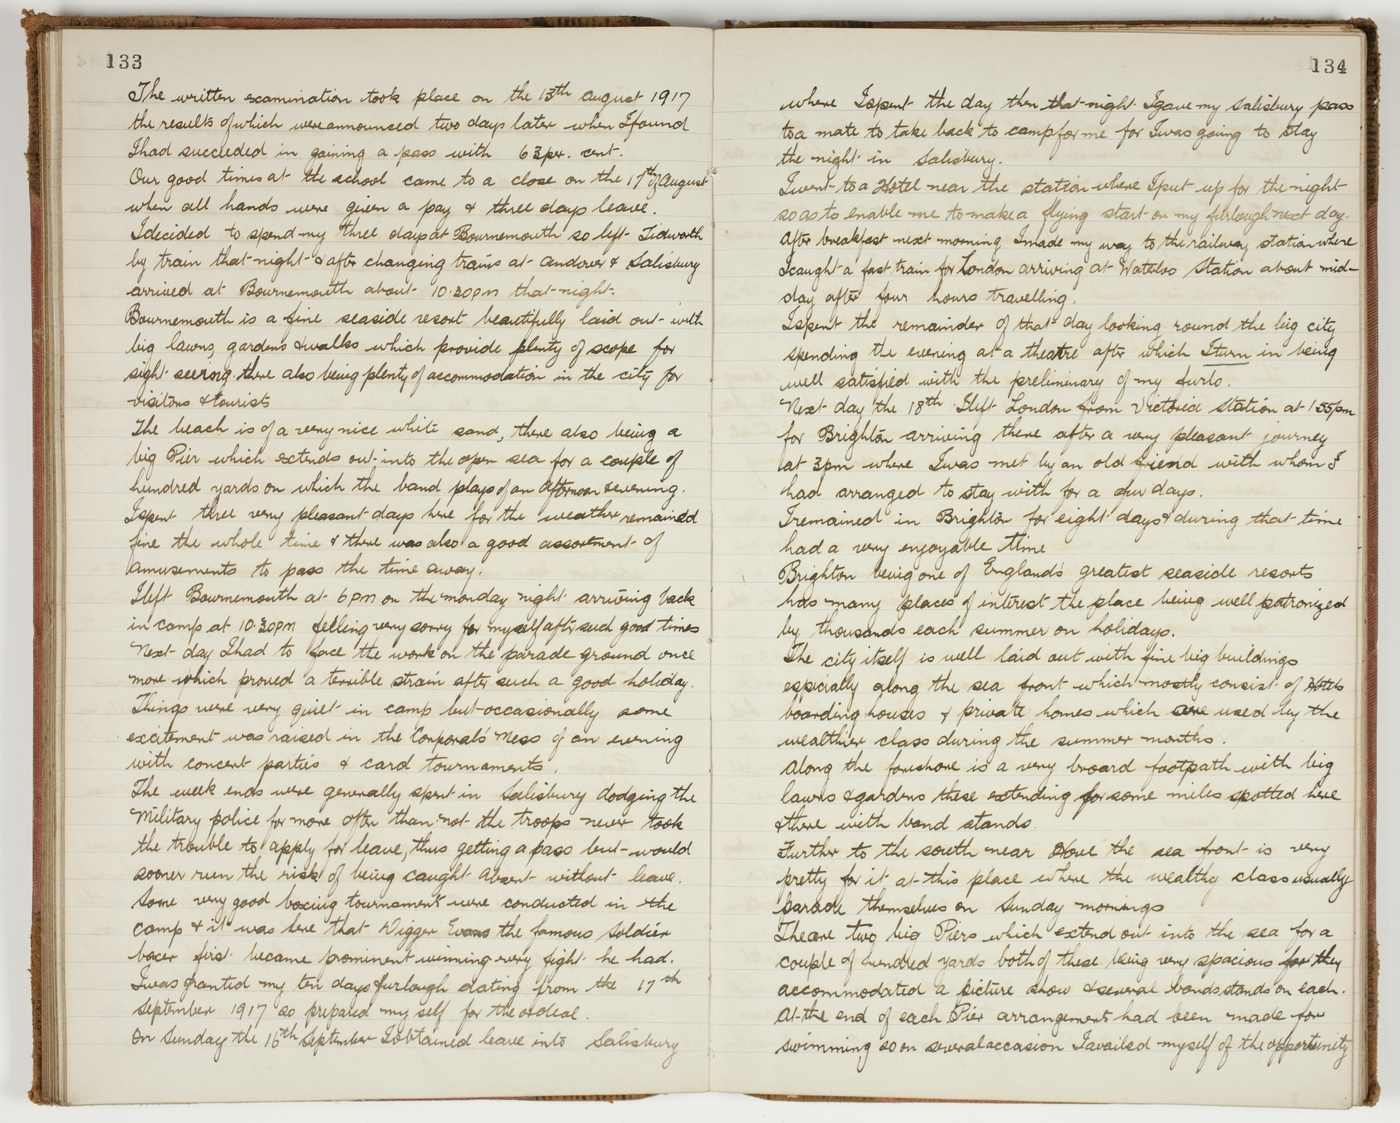 133
The written examination took place on the 13th August 1917
the results of which were announced two days later when I found
I had succeeded in gaining a pass with 63 per. cent.
Our good times at the school came to a close on the 17th of August
when all hands were given a pay & three days leave.
I decided to spend my three days at Bournemouth so left Tidworth
by train that night & after changing trains at Andover & Salisbury
arrived at Bournemouth about 10.30pm that night.
Bournemouth is a fine seaside resort beautifully laid out with
big lawns, gardens & walks which provide plenty of scope for
sight seeing there also being plenty of accommodation in the city for
visitors & tourists
The beach is of a very nice white sand, there also being a
big Pier which extends out into the open sea for a couple of
hundred yards on which the band plays of an afternoon & evening.
I spent three very pleasant days here for the weather remained
fine the whole time & there was also a good assortment of
amusements to pass the time away.
I left Bournemouth at 6pm on the Monday night arriving back
in camp at 10.30pm felling very sorry for myself after such good times
Next day I had to face the work on the parade ground once
more which proved a terrible strain after such a good holiday.
Things were very quiet in camp but occasionally some
excitement was raised in the Corporals' Mess of an evening
with concert parties & card tournaments.
The week ends were generally spent in Salisbury dodging the
Military police for more often than not the troops never took
the trouble to apply for leave, thus getting a pass but would
sooner run the risk of being caught absent without leave.
Some very good boxing tournament were conducted in the
camp & it was here that Digger Evans the famous soldier
boxer first became prominent winning every fight he had.
I was granted my ten days furlough dating from the 17th
September 1917 so prepared my self for the ordeal.
On Sunday the 16th September I obtained leave into Salisbury
134
where I spent the day then that night I gave my Salisbury pass
to a mate to take back to camp for me for I was going to stay
the night in Salisbury.
I went to a Hotel near the station where I put up for the night
so as to enable me to make a flying start on my furlough next day.
After breakfast next morning I made my way to the railway station where
I caught a fast train for London arriving at Waterloo Station about mid-
day after four hours travelling.
I spent the remainder of that day looking round the big city
spending the evening at a theatre after which I turn in being
well satisfied with the preliminary of my furlo.
Next day the 18th I left London from Victoria Station at 1.55pm
for Brighton arriving there after a very pleasant journey
at 3pm where I was met by an old friend with whom I
had arranged to stay with for a few days.
I remained in Brighton for eight days & during that time
had a very enjoyable time
Brighton being one of England's greatest seaside resorts
has many places of interest the place being well patronized
by thousands each summer on holidays.
The city itself is well laid out with fine big buildings
especially along the sea front which mostly consist of Hotels
boarding houses & private homes which are used by the
wealthier class during the summer months.
Along the foreshore is a very broard footpath with big
lawns & gardens these extending for some miles spotted here
& there with band stands.
Further to the south near Hove the sea front is very
pretty for it at this place where the wealthy class usually
parade themselves on Sunday mornings
Theare two big Piers which extend out into the sea for a
couple of hundred yards both of these being very spacious for they
accommodated a picture show & several bandsstands on each.
At the end of each Pier arrangement had been made for
swimming so on several accasion I availed myself of the opportunity